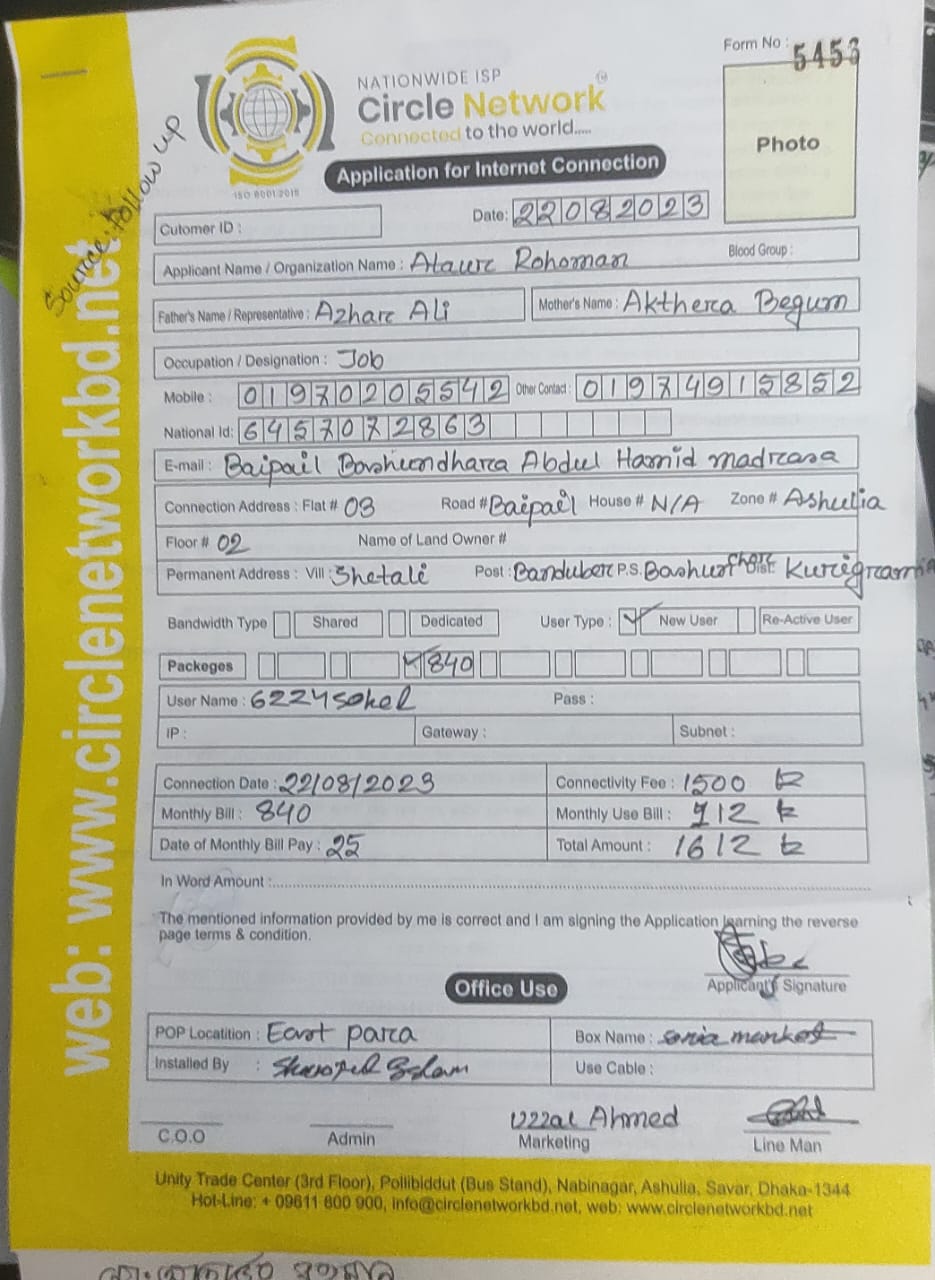 Form No : 5453
NATIONWIDE ISP
Circle Network
Connected to the world.....
ISO 9001:2015
Photo
Application for Internet Connection
Source: Follow up
web: www.circlenetworkbd.net
Date: 22082023
Cutomer ID :
Applicant Name / Organization Name : Ataure Rohoman Blood Group :
Father's Name / Representative : Azhare Ali Mother's Name : Akthera Begum
Occupation / Designation : Job
Mobile : 01970205542 Other Contact : 01974915852
National Id: 6457072863
E-mail : Baipail Bashundhara Abdul Hamid madrasa
Connection Address : Flat # 03 Road # Baipail House # N/A Zone # Ashulia
Floor # 02 Name of Land Owner #
Permanent Address : Vill : Shetali Post : Banduber P.S. Dist. Kurigram
Bandwidth Type Shared Dedicated User Type : ✓ New User Re-Active User
Packeges ✓ 840
User Name : 6224sohel Pass :
IP : Gateway : Subnet :
Connection Date : 22/08/2023 Connectivity Fee : 1500 tk
Monthly Bill : 840 Monthly Use Bill : 112 tk
Date of Monthly Bill Pay : 25 Total Amount : 1612 tk
In Word Amount :
The mentioned information provided by me is correct and I am signing the Application learning the reverse
page terms & condition.
Applicant's Signature
Office Use
POP Locatition : East para Box Name : sonia market
Installed By : Use Cable :
Uzzal Ahmed
C.O.O Admin Marketing Line Man
Unity Trade Center (3rd Floor), Pollibiddut (Bus Stand), Nabinagar, Ashulia, Savar, Dhaka-1344
Hot-Line: + 09611 800 900, info@circlenetworkbd.net, web: www.circlenetworkbd.net